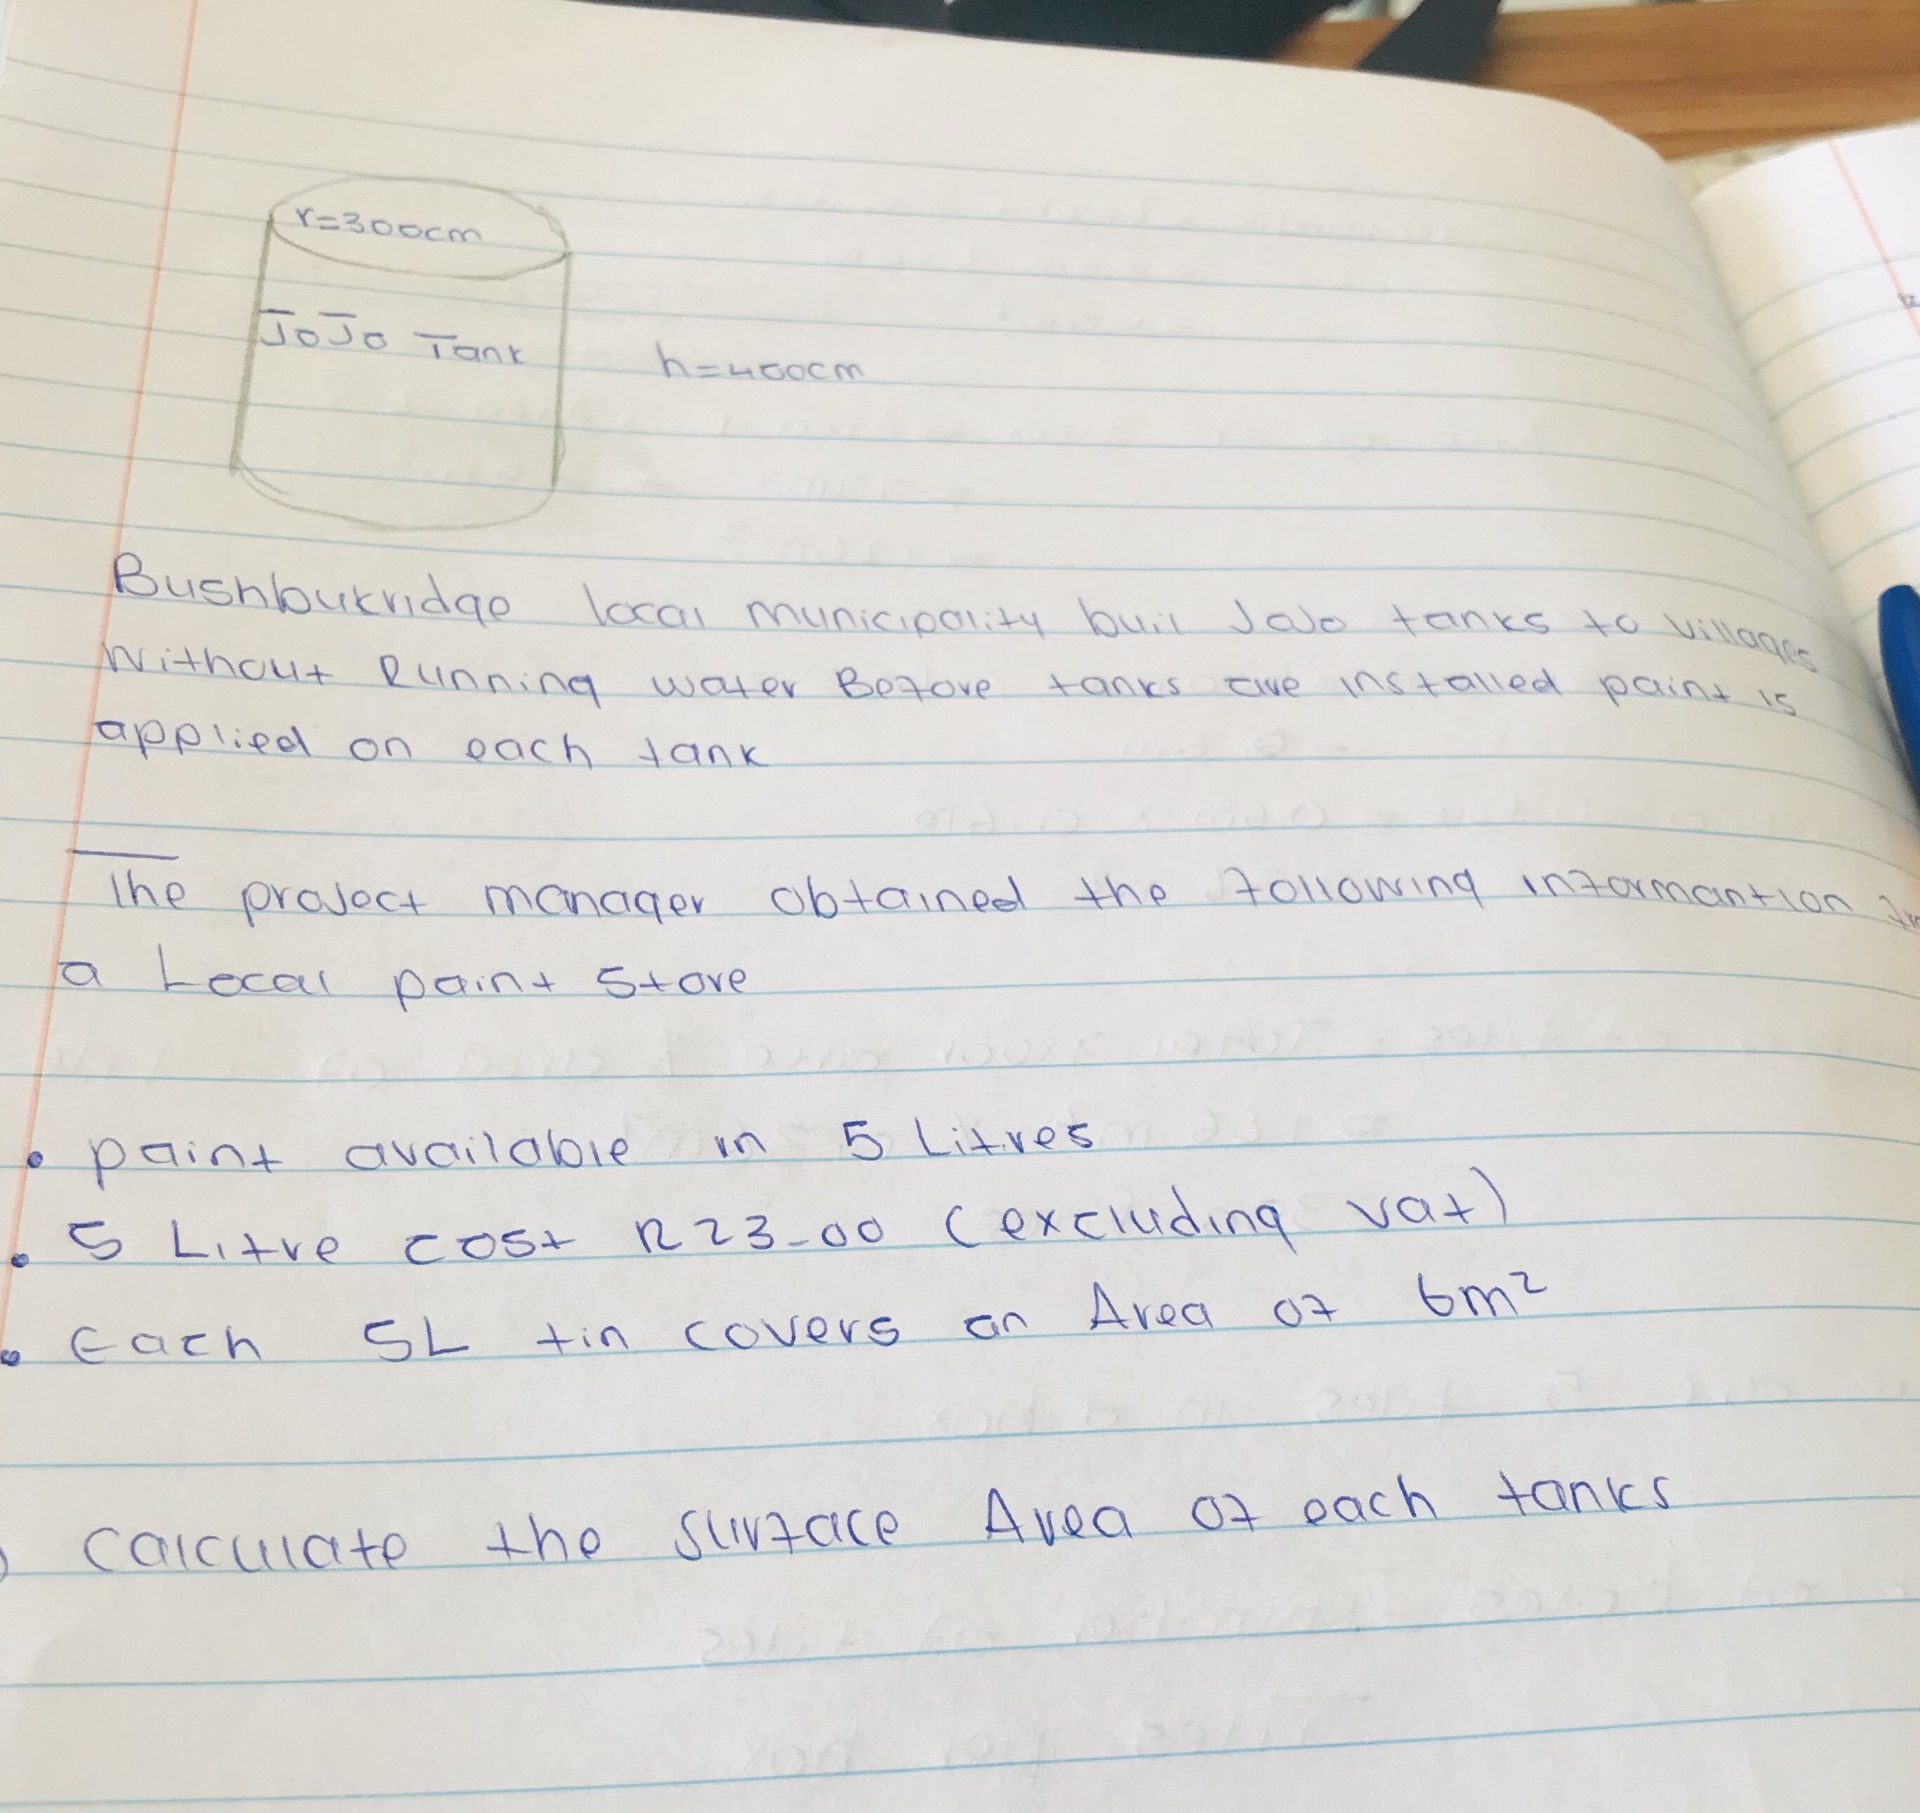 r=300cm
JoJo Tank
h=400cm
Bushbukridge local municipality buil JoJo tanks to villages
Without Running water Before tanks are installed paint is
applied on each tank
The project manager obtained the following informantion
a Local paint store
• paint available in 5 Litres
• 5 Litre cost R23-00 (excluding vat)
• Each 5L tin covers an Area of 6m²
calculate the surface Area of each tanks